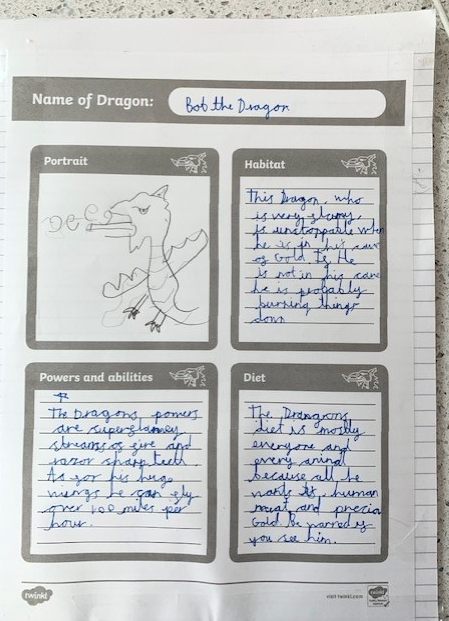 Name of Dragon: Bob the Dragon
Portrait
Habitat
This Dragon, who
is very
is unstoppable when
he is in his cave
of Gold. If He
is not in his cave
he is probably
burning things
down
Powers and abilities
The Dragons powers
are
streams of fire and
razor sharp teeth.
As for his huge
wings he can fly
over 100 miles per
hour.
Diet
The
diet is mostly
everyone and
every
because all he
wants is human
meat and
Gold. Be warned if
you see him.
twinkl
visit twinkl.com